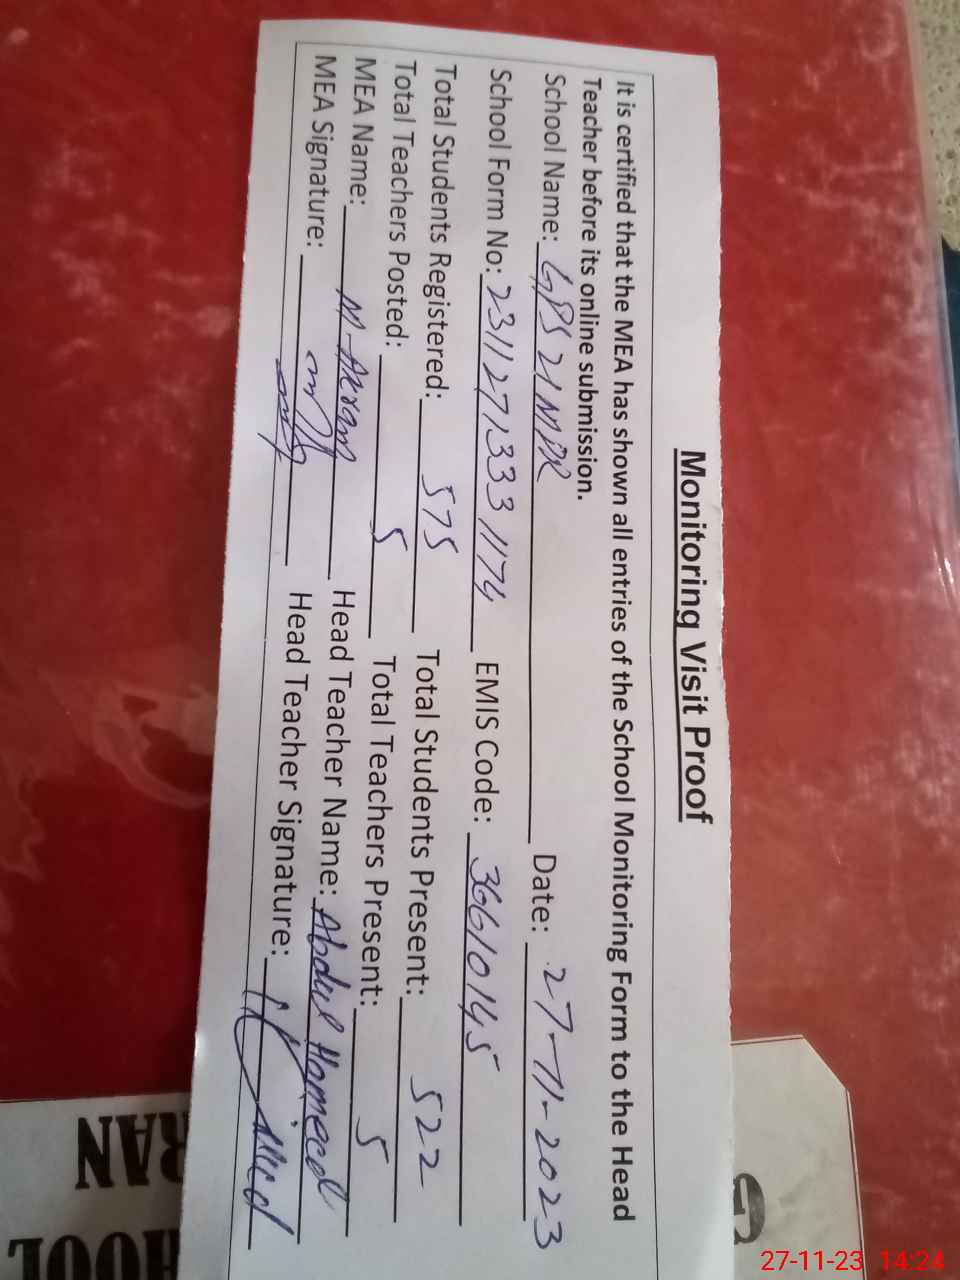 Monitoring Visit Proof
It is certified that the MEA has shown all entries of the School Monitoring Form to the Head
Teacher before its online submission.
School Name: GPS 21 MPR Date: 27-11-2023
School Form No: 2311271333 1174 EMIS Code: 36610145
Total Students Registered: 575 Total Students Present: 522
Total Teachers Posted: 5 Total Teachers Present: 5
MEA Name: M. Akram Head Teacher Name: Abdul Hameed
MEA Signature: Head Teacher Signature:
RAN
HOOL
27-11-23 14:24